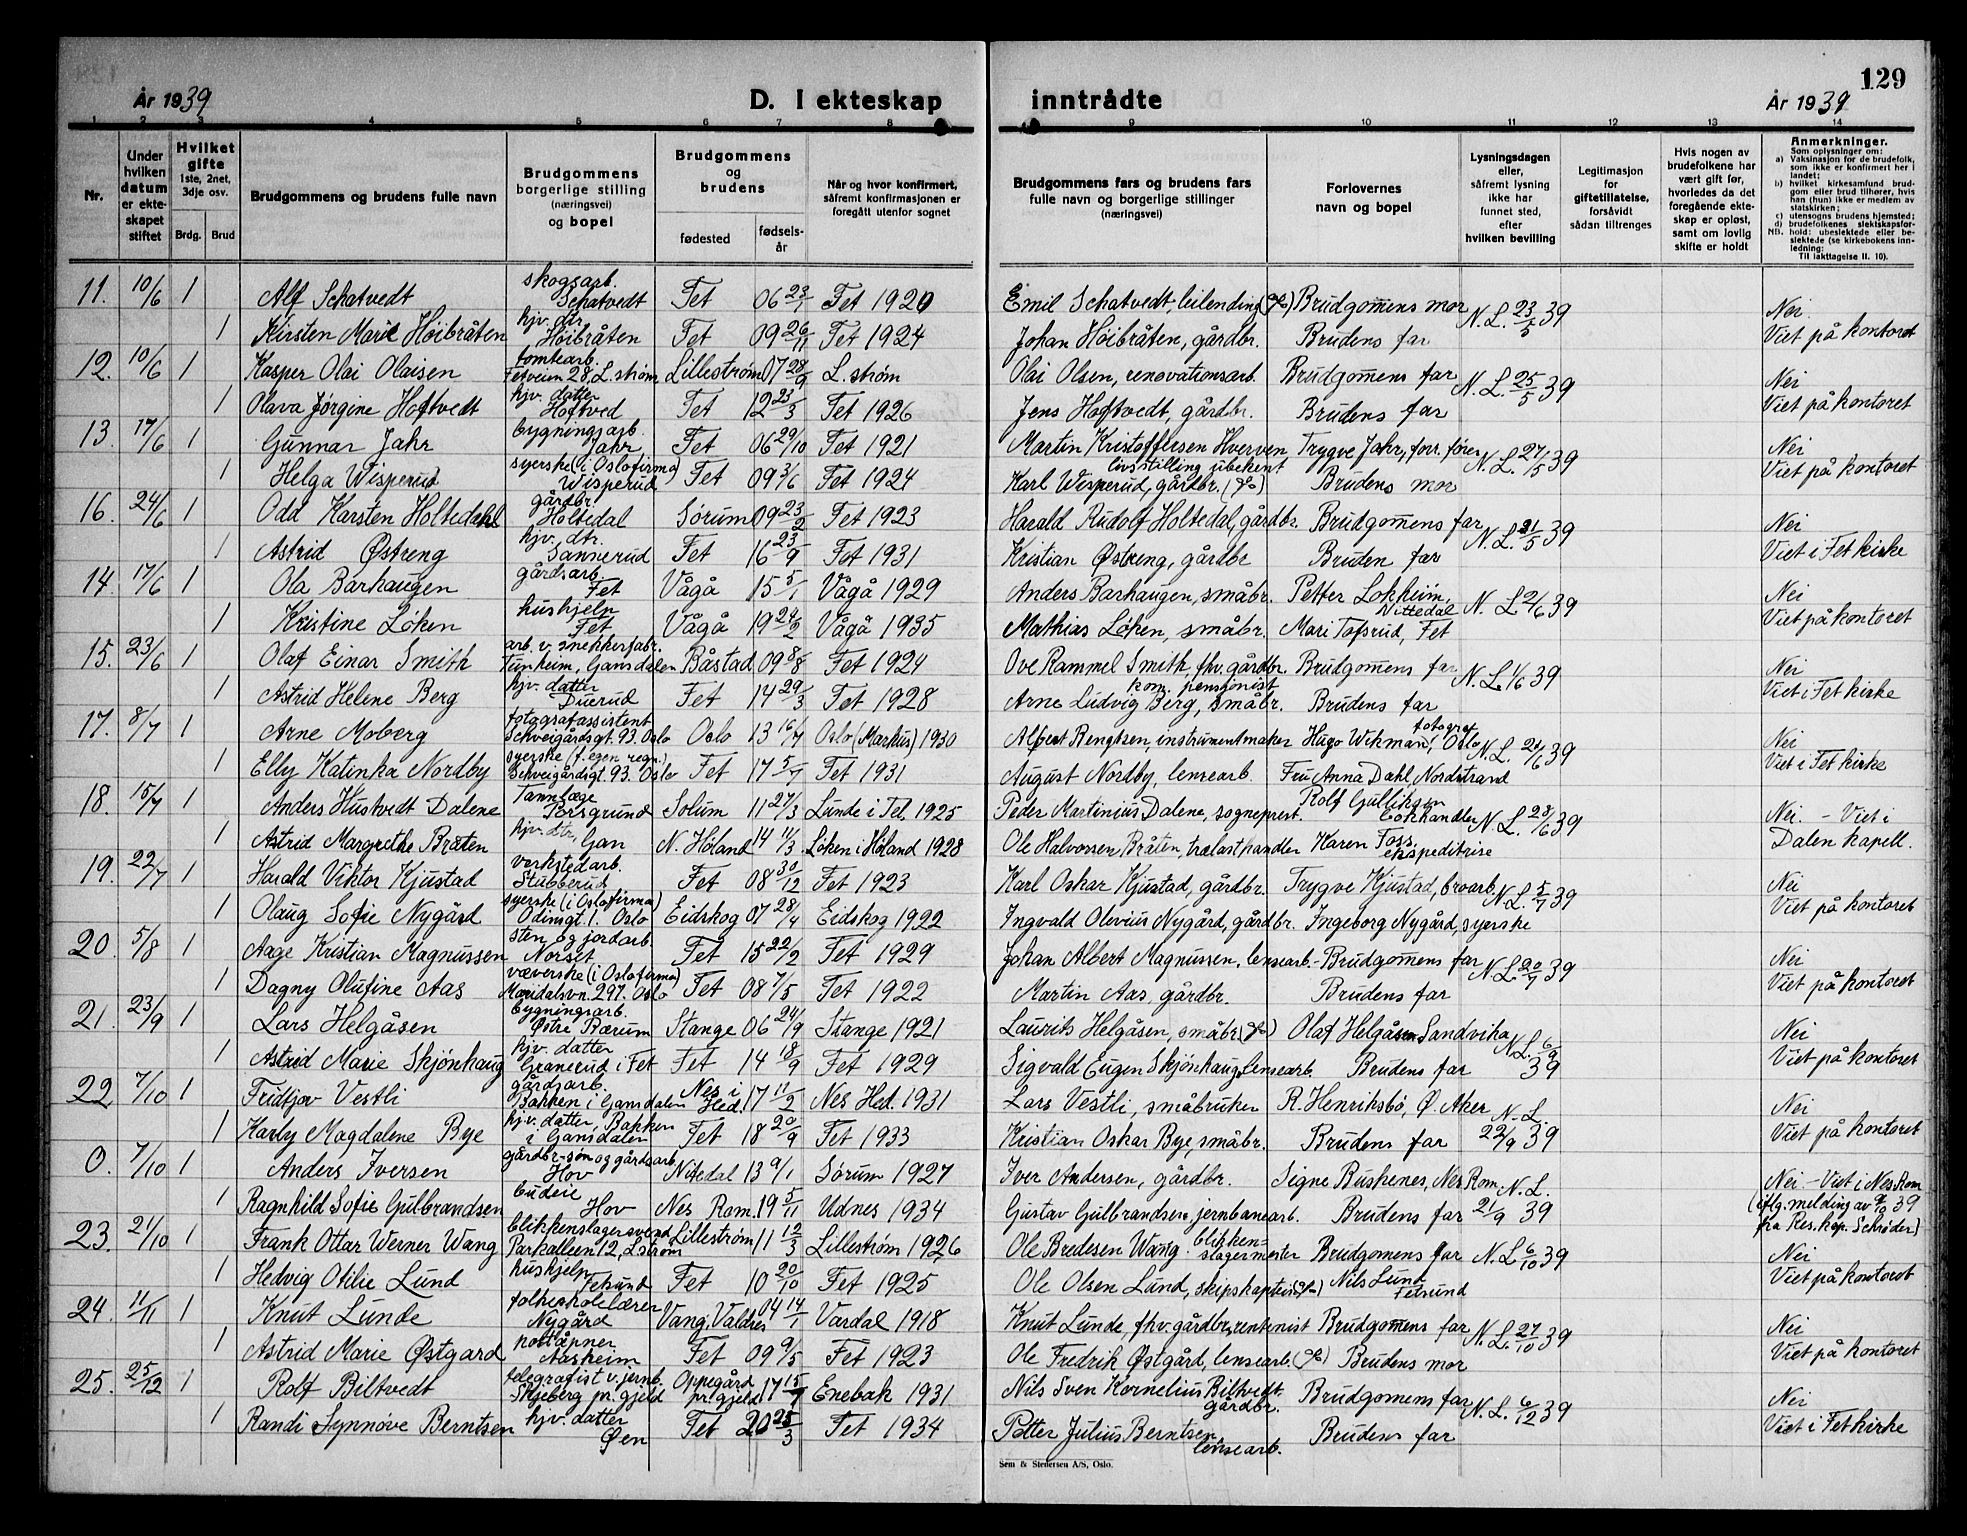 År 1939
D. I ekteskap
inntrådte
År 1939
129
1 2 3 4 5 6 7 8 9 10 11 12 13 14
Nr.
Under hvilken datum er ekteskapet stiftet
Hvilket gifte 1ste, 2net, 3dje osv.
Brdg. Brud
Brudgommens og brudens fulle navn
Brudgommens borgerlige stilling (næringsvei) og bopel
Brudgommens og brudens
fødested
fødselsår
Når og hvor konfirmert, såfremt konfirmasjonen er foregått utenfor sognet
Brudgommens fars og brudens fars fulle navn og borgerlige stillinger (næringsvei)
Forlovernes navn og bopel
Lysningsdagen eller, såfremt lysning ikke har funnet sted, efter hvilken bevilling
Legitimasjon for giftetillatelse, forsåvidt sådan tiltrenges
Hvis nogen av brudefolkene har vært gift før, hvorledes da det foregående ekteskap er opløst, samt om lovlig skifte er holdt
Anmerkninger.
Som oplysninger om:
a) Vaksinasjon for de brudefolk, som ikke er konfirmert her i landet;
b) hvilket kirkesamfund brudgom eller brud tilhører, hvis han (hun) ikke er medlem av statskirken;
c) utensogns brudens hjemsted;
d) brudefolkenes slektskapsforhold: ubeslektede eller beslektede (se kirkebokens innledning:
NB.
Til iakttagelse II. 10).
11. 10/6 1 Alf Schatvedt skogsarb. Schatvedt Fet 06 23/1 Fet 1920 Emil Schatvedt, leilending Brudgomens mor N.L. 23/5 39 Nei
1 Kirsten Marie Høibråten hjv. dtr. Høibråten Fet 09 26/11 Fet 1924 Johan Høibråten, gårdbr. Brudens far Viet på kontoret
12. 10/6 1 Kasper Olai Olaisen tomtearb. Fetveien 28, L.strøm Lillestrøm 07 28/9 L.strøm Olai Olsen, renovationsarb. Brudgomens far N.L. 25/5 39 Nei
1 Olava Jørgine Hoftvedt hjv. datter Hoftved Fet 12 23/3 Fet 1926 Jens Hoftvedt, gårdbr. Brudens far Viet på kontoret
13. 17/6 1 Gunnar Jahr bygningsarb. Jahr Fet 06 29/10 Fet 1921 Martin Kristoffersen Hverven livsstilling ubekent Trygve Jahr, forr.fører N.L. 27/5 39 Nei
1 Helga Wisperud syerske (i Oslofirma) Wisperud Fet 09 3/6 Fet 1924 Karl Wisperud, gårdbr. Brudens mor Viet på kontoret
16. 24/6 1 Odd Karsten Holtedahl gårdbr. Holtedal Sørum 09 23/2 Fet 1923 Harald Rudolf Holtedal, gårdbr. Brudgomens far N.L. 31/5 39 Nei
1 Astrid Østreng hjv. dtr. Sannerud Fet 16 23/9 Fet 1931 Kristian Østreng, gårdbr Bruden far Viet i Fet kirke
14. 17/6 1 Ola Barhaugen gårdsarb. Fet Vågå 15 5/1 Vågå 1929 Anders Barhaugen, småbr. Petter Lokheim, Nittedal N. L. 2/6 39 Nei
1 Kristine Løken hushjelp Fet Vågå 19 24/2 Vågå 1935 Mathias Løken, småbr. Mari Tofsrud, Fet Viet på kontoret
15. 23/6 1 Olaf Einar Smith arb. v. snekkerfabr. Tunheim, Gansdalen Båstad 09 8/8 Fet 1924 Ove Rammel Smith, fhv. gårdbr. kom. pensjonist Brudgomens far N.L. 1/6 39 Nei
1 Astrid Helene Berg hjv. datter Duerud Fet 14 29/3 Fet 1928 Arne Ludvig Berg, småbr. Brudens far Viet i Fet kirke
17. 8/7 1 Arne Moberg fotografassistent Schveigårdsgt. 93. Oslo Oslo 13 16/7 Oslo (Markus) 1930 Albert Bengtsen, instrumentmaker Hugo Wikman, fotograf Oslo N.L. 21/6 39 Nei
1 Elly Katinka Nordby syerske (f. egen regn.) Schveigårdsgt. 93. Oslo Fet 17 5/7 Fet 1931 August Nordby, lensearb. Fru Anna Dahl, Nordstrand Viet i Fet kirke
18. 15/7 1 Anders Hustvedt Dalene Tannlæge Porsgrund Solum 11 27/3 Lunde i Tel. 1925 Peder Martinius Dalene, sogneprest. Rolf Gulliksen Bokhandler N.L. 28/6 39 Nei. - Viet i
1 Astrid Margrethe Bråten hjv. dtr., Gan N. Høland 14 11/3 Løken i Høland 1928 Ole Halvorsen Bråten, trælasthandler Karen Foss ekspeditrise Dalen kapell.
19. 22/7 1 Harald Viktor Kjustad verkstedarb. Stubberud Fet 08 30/12 Fet 1923 Karl Oskar Kjustad, gårdbr. Trygve Kjustad, broarb. N.L. 5/7 39 Nei
1 Olaug Sofie Nygård syerske (i Oslofirma) Odinsgt. 1. Oslo Eidskog 07 28/4 Eidskog 1922 Ingvald Olevius Nygård, gårdbr. Ingeborg Nygård, syerske Viet på kontoret
20. 5/8 1 Aage Kristian Magnussen sten og jordarb. Norset Fet 15 22/2 Fet 1929 Johan Albert Magnussen, lensearb. - Brudgomens far N.L. 20/7 39 Nei
1 Dagny Olufine Aas væverske (i Oslofirma) Maridalsvn. 297. Oslo Fet 08 7/5 Fet 1922 Martin Aas, gårdbr. Brudens far Viet på kontoret
21. 23/9 1 Lars Helgåsen bygningsarb. Østre Bærum Stange 06 24/9 Stange 1921 Laurits Helgåsen, småbr. Olaf Helgåsen Sandvika N.L. 6/9 39 Nei
1 Astrid Marie Skjønhaug hjv. datter Granerud i Fet Fet 14 18/9 Fet 1929 Sigvald Eugen Skjønhaug, lensearb. Brudens far Viet på kontoret
22 7/10 1 Fridtjov Vestli gårdsarb. Bakken i Gansdalen Nes i Hed. 17 11/2 Nes Hed. 1931 Lars Vestli, småbruker R. Henriksbø, Ø. Aker N.L. 22/9 39 Nei
1 Karly Magdalene Bye hjv. datter, Bakken i Gansdalen Fet 18 20/9 Fet 1933 Kristian Oskar Bye, småbr. Brudens far Viet på kontoret
0. 7/10 1 Anders Iversen gårdbr-søn og gårdsarb. Hov Nitedal 13 9/1 Sørum 1927 Iver Andersen, gårdbr. Signe Ruskenes, Nes Rom. N.L. 21/9 39 Nei - Viet i Nes Rom
1 Ragnhild Sofie Gulbrandsen budeie Hov Nes Rom. 19 5/11 Udnes 1934 Gustav Gulbrandsen, jernbanearb. Brudens far (iflg. melding av 9/10 39 fra Res. kap. Schrøder)
23. 21/10 1 Frank Ottar Werner Wang blikkenslagersvend Parkalleen 12, L.strøm Lillestrøm 11 12/3 Lillestrøm 1926 Ole Bredesen Wang blikkenslagermester Brudgomens far N.L. 6/10 39 Nei
1 Hedvig Otilie Lund hushjelp Fetsund Fet 10 20/10 Fet 1925 Ole Olsen Lund, skipskaptein Nils Lund Fetsund Viet på kontoret
24. 11/11 1 Knut Lunde folkeskolelærer Nygård Vang, Valdres 04 14/1 Vardal 1918 Knut Lunde, fhv. gårdbr, rentenist Brudgomens far N.L. 27/10 39 Nei
1 Astrid Marie Østgard poståpner Aasheim Fet 09 9/5 Fet 1923 Ole Fredrik Østgård, lensearb. Brudens mor Viet på kontoret
25. 25/12 1 Rolf Biltvedt telegrafist v. jernb. Skjeberg pr. gjeld Oppegård pr. gjeld 17 15/7 Enebak 1931 Nils Sven Kornelius Biltvedt. gårdbr. Brudgomens far N.L. 6/12 39 Nei
1 Randi Synnøve Berntsen hjv. datter Øen Fet 20 25/3 Fet 1934 Petter Julius Berntsen, lensearb. Brudens far Viet i Fet kirke
Sem & Stenersen A/S, Oslo.